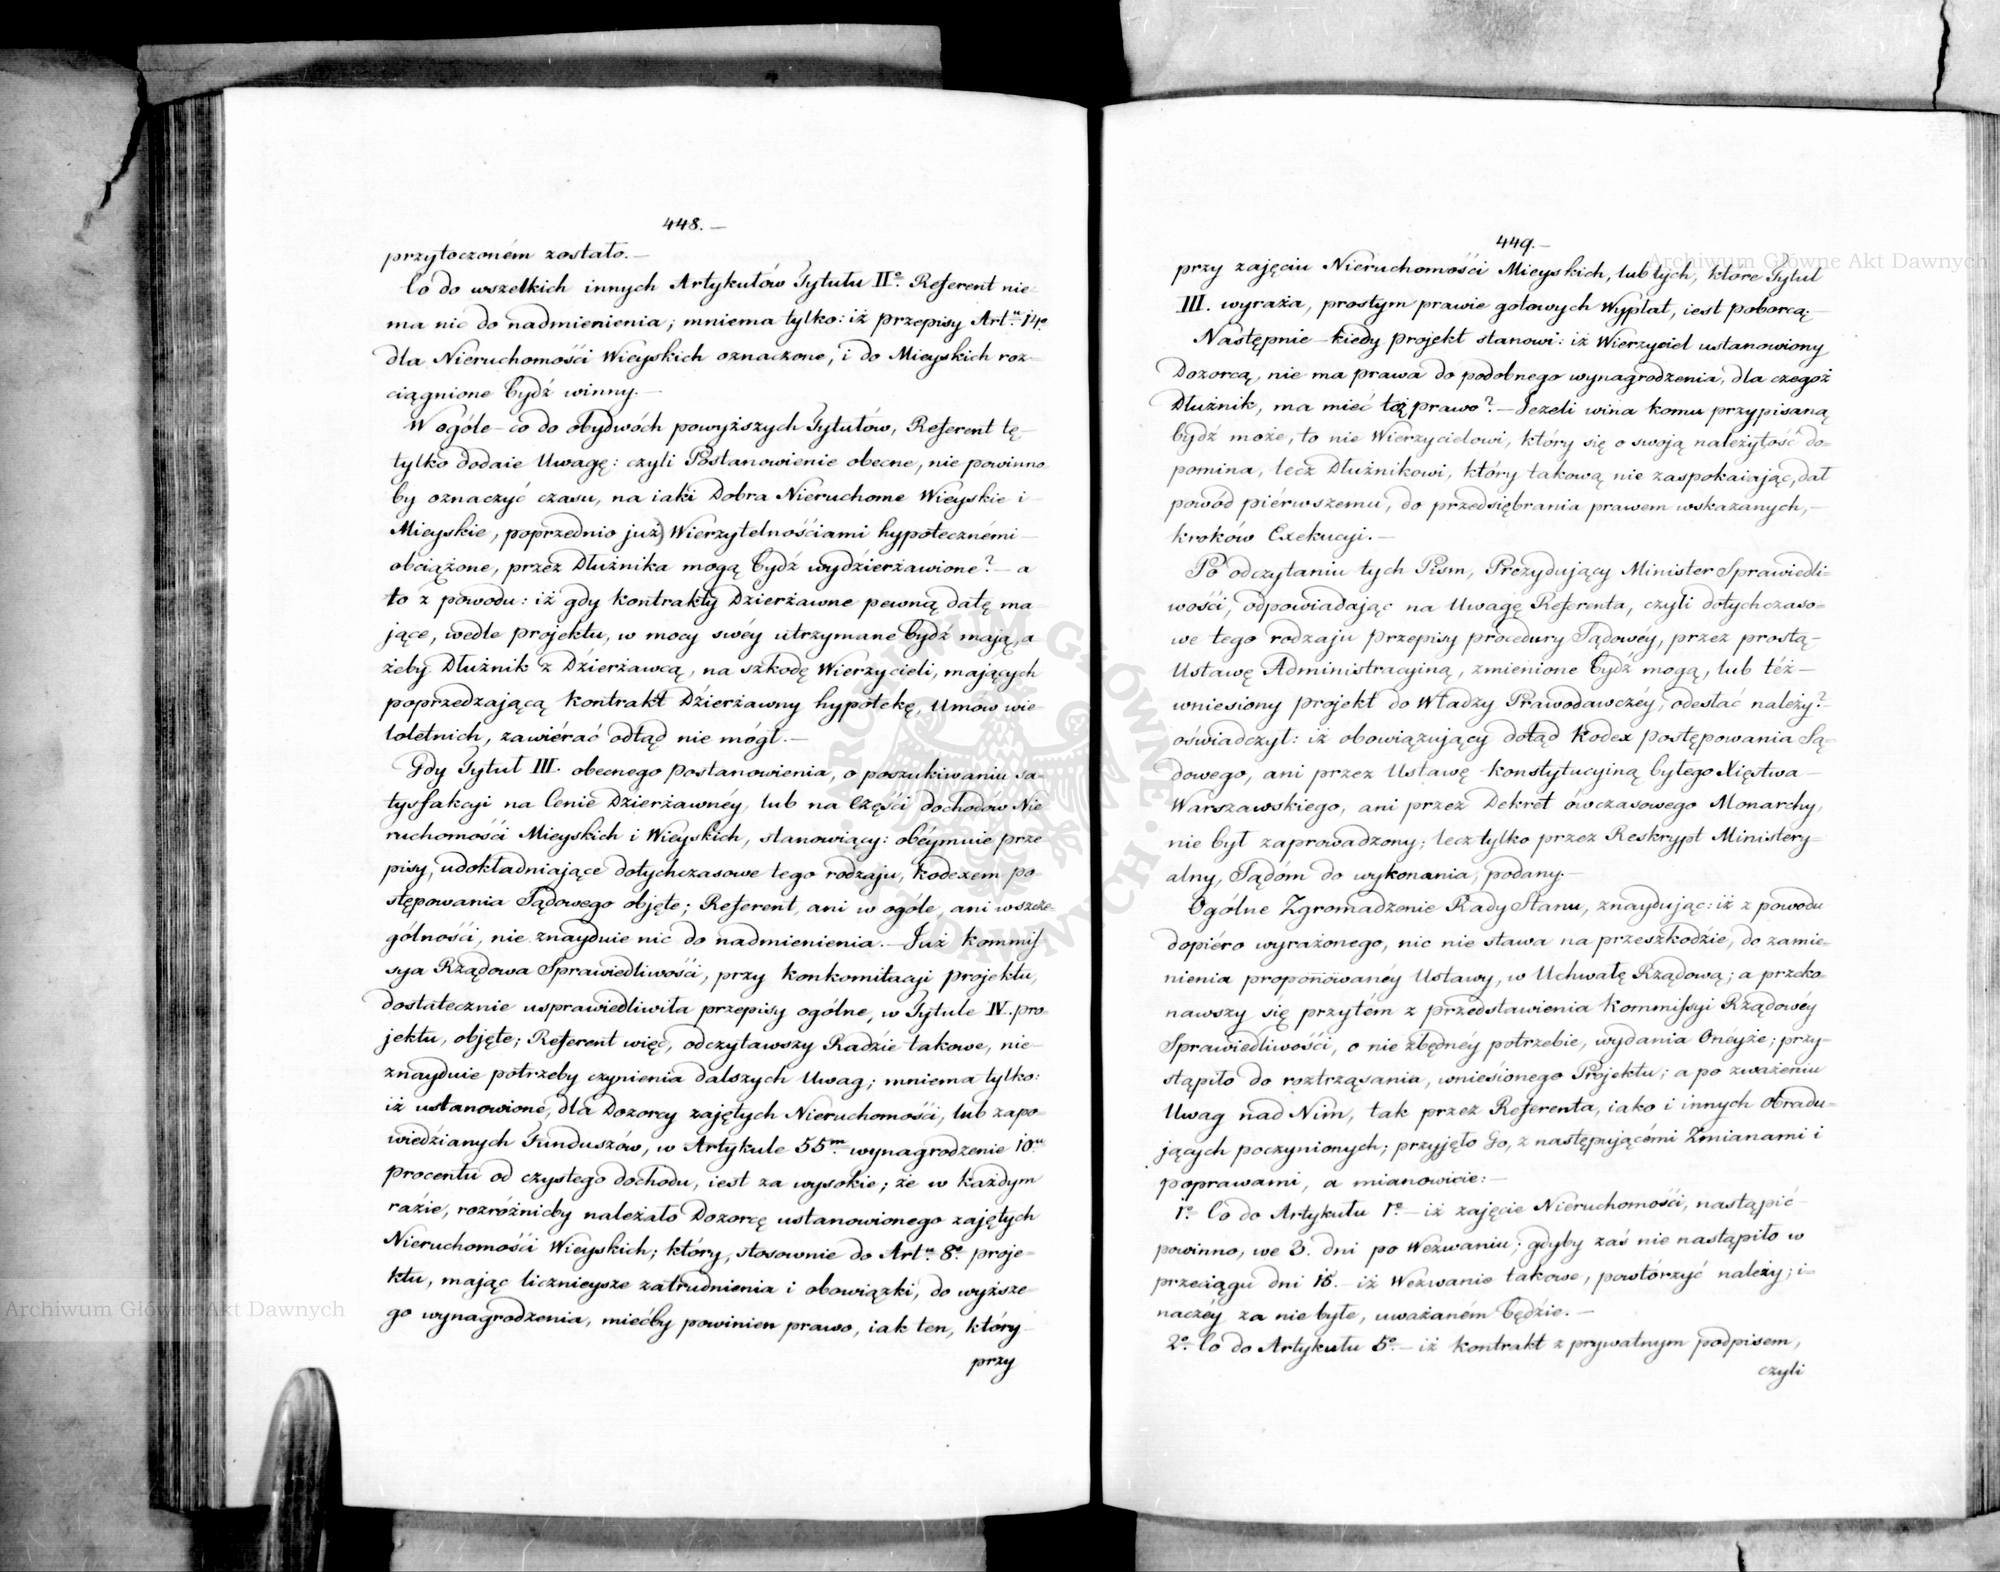 448.—
przytoczoném zostało.—
Co do wszelkich innych Artykułów Tytułu IIº. Referent nie-
ma nic do nadmienienia; mniema tylko: iż przepisy Artu. 14º
dla Nieruchomości Wieyskich oznaczone, i do Mieyskich roz-
ciągnione bydź winny.—
W ogóle – co do obydwóch powyższych Tytułów, Referent tę-
tylko dodaie Uwagę: czyli Postanowienie obecne, nie powinno-
by oznaczyć czasu, na iaki Dobra Nieruchome Wieyskie i-
Mieyskie, poprzednio już Wierzytelnościami hypotecznémi-
obciążone, przez Dłużnika mogą bydź wydzierżawione?— a
to z powodu: iż gdy kontrakty Dzierżawne pewną datę ma-
jące, wedle projektu, w mocy swéy utrzymane bydź mają, a
żeby Dłużnik z Dzierżawcą, na szkodę Wierzycieli, mających
poprzedzającą kontrakt Dzierżawny hypotekę, Umów wie-
loletnich, zawiérać odtąd nie mógł.—
Gdy Tytuł III. obecnego Postanowienia, o poszukiwaniu sa-
tysfakcyi na Cenie Dzierżawnéy, lub na Części dochodów Nie
ruchomości Mieyskich i Wieyskich, stanowiący: obéymuie prze
pisy, udokładniające dotychczasowe tego rodzaju, kodexem po-
stępowania Sądowego objęte; Referent, ani w ogóle, ani w szcze-
gólności, nie znayduie nic do nadmienienia.— Już Kommis
sya Rządowa Sprawiedliwości, przy konkomitacyi projektu,
dostatecznie usprawiedliwiła przepisy ogólne, w Tytule IV. pro-
jektu, objęte; Referent więc, odczytawszy Radzie takowe, nie-
znayduie potrzeby czynienia dalszych Uwag; mniema tylko:
iż ustanowione, dla Dozorcy zajętych Nieruchomości, lub zapo-
wiedzianych Funduszów, w Artykule 55m. wynagrodzenie 10u.
procentu od czystego dochodu, iest za wysokie; że w każdym
razie, rozróżnicby należało Dozorcę ustanowionego zajętych
Nieruchomości Wieyskich; który, stosownie do Artu. 8º. proje-
ktu, mając licznieysze zatrudnienia i obowiązki, do wyższe-
go wynagrodzenia, miećby powinien prawo, iak ten, który-
przy
449.—
przy zajęciu Nieruchomości Mieyskich, lub tych, które Tytuł
III. wyraża, prostym prawie gotowych Wypłat, iest poborcą.—
Następnie – kiedy projekt stanowi: iż Wierzyciel ustanowiony
Dozorcą, nie ma prawa do podobnego wynagrodzenia, dla czegoż
Dłużnik, ma mieć toż prawo?— Jeżeli wina komu przypisaną
bydź może, to nie Wierzycielowi, który się o swoją należytość do-
pomina, lecz Dłużnikowi, który takową nie zaspokaiając, dał
powód piérwszemu, do przedsiębrania prawem wskazanych,—
kroków Exekucyi.—
Po odczytaniu tych Pism, Prezydujący Minister Sprawiedli-
wości, odpowiadając na Uwagę Referenta, czyli dotychczaso-
we tego rodzaju przepisy procedury Sądowéy, przez prostą-
Ustawę Administracyiną, zmienione bydź mogą, lub téż—
wniesiony projekt do Władzy Prawodawczéy, odesłać należy?-
oświadczył: iż obowiązujący dotąd Kodex postępowania Są-
dowego, ani przez Ustawę konstytucyiną byłego Xięstwa-
Warszawskiego, ani przez Dekret ówczasowego Monarchy,
nie był zaprowadzony; lecz tylko przez Reskrypt Ministery-
alny, Sądóm do wykonania, podany.—
Ogólne Zgromadzenie Rady Stanu, znaydując: iż z powodu
dopiéro wyrażonego, nic nie stawa na przeszkodzie, do zamie-
nienia proponowanéy Ustawy, w Uchwałę Rządową; a przeko-
nawszy się przytém z przedstawienia Kommissyi Rządowéy
Sprawiedliwości, o nie zbędnéy potrzebie, wydania Onéyże; przy-
stąpiło do roztrząsania, wniesionego Projektu; a po zważeniu
Uwag nad Nim, tak przez Referenta, iako i innych Obradu-
jących poczynionych; przyjęło Go, z następującémi Zmianami i
poprawami, a mianowicie:—
1º. Co do Artykułu 1º.— iż zajęcie Nieruchomości, nastąpić-
powinno, we 3. dni po Wezwaniu; gdyby zaś nie nastąpiło w
przeciągu dni 15.— iż Wezwanie takowe, powtórzyć należy; i-
naczéy za nie byłe, uważaném będzie.—
2º. Co do Artykułu 5º.— iż kontrakt z prywatnym podpisem,
czyli
Archiwum Główne Akt Dawnych
Archiwum Główne Akt Dawnych
ARCHIWUM GŁÓWNE AKT DAWNYCH